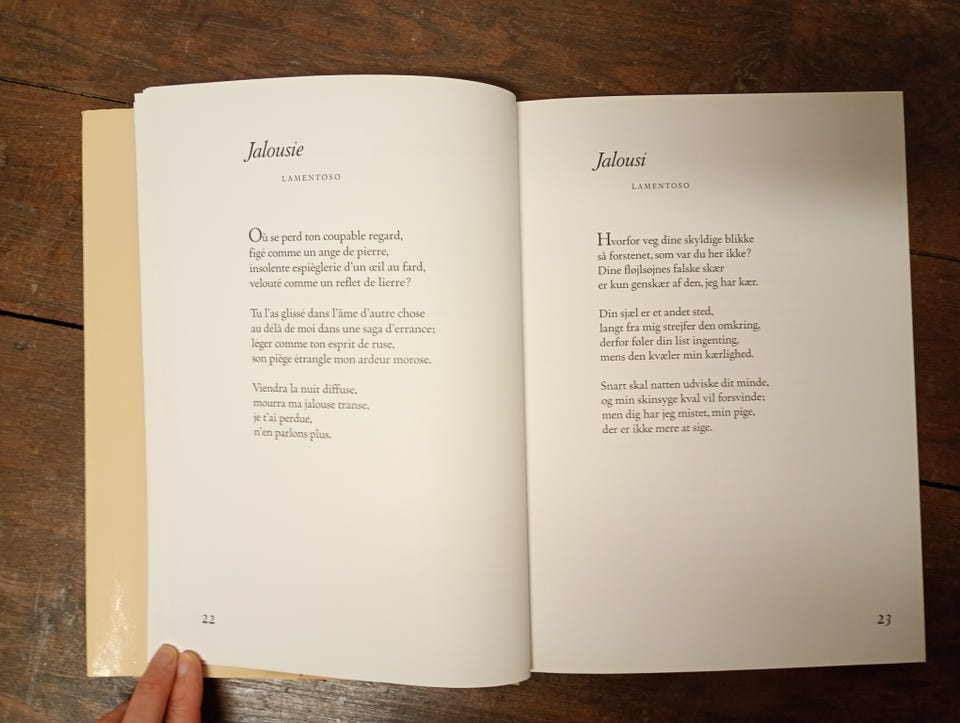 Jalousie
LAMENTOSO
Où se perd ton coupable regard,
figé comme un ange de pierre,
insolente espièglerie d'un œil au fard,
velouté comme un reflet de lierre?
Tu l'as glissé dans l'âme d'autre chose
au délà de moi dans une saga d'errance;
léger comme ton esprit de ruse,
son piège étrangle mon ardeur morose.
Viendra la nuit diffuse,
mourra ma jalouse transe,
je t'ai perdue,
n'en parlons plus.
22
Jalousi
LAMENTOSO
Hvorfor veg dine skyldige blikke
så forstenet, som var du her ikke?
Dine fløjlsøjnes falske skær
er kun genskær af den, jeg har kær.
Din sjæl er et andet sted,
langt fra mig strejfer den omkring,
derfor føler din list ingenting,
mens den kvæler min kærlighed.
Snart skal natten udviske dit minde,
og min skinsyge kval vil forsvinde;
men dig har jeg mistet, min pige,
der er ikke mere at sige.
23